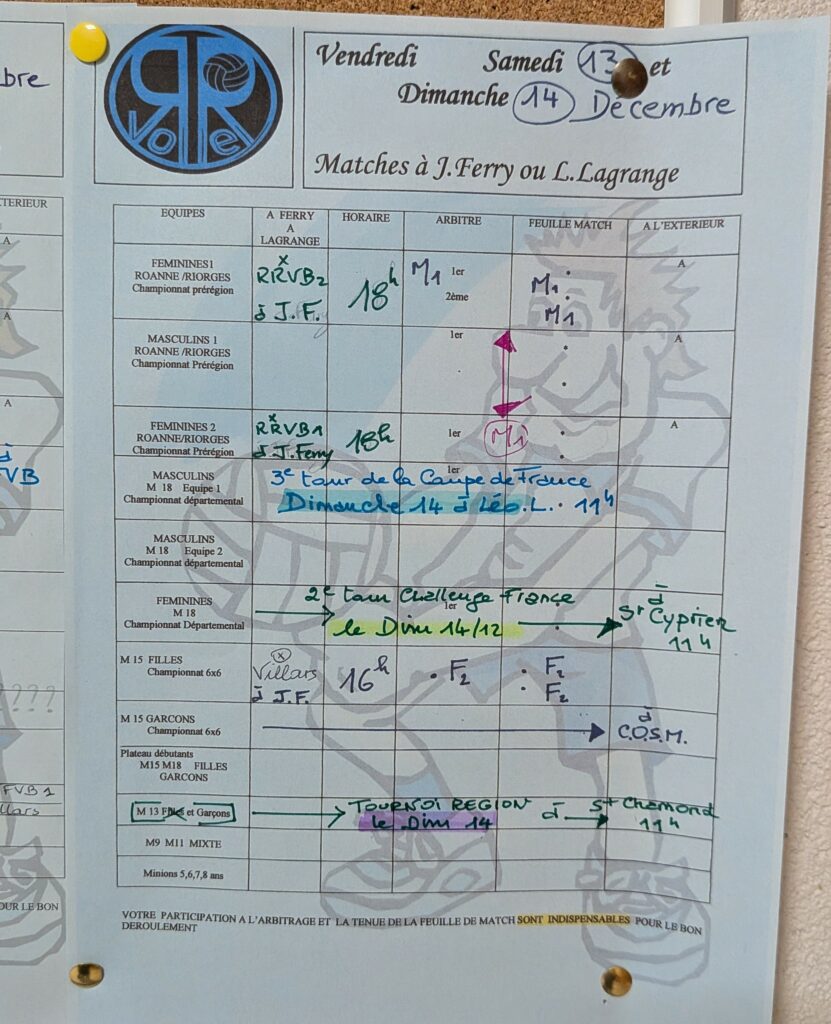 bre
TERIEUR
A
A
A
à
VB
???
FVB 1
llars
OUR LE BON
RR
Volley
Vendredi Samedi 13 et
Dimanche 14 Décembre
Matches à J.Ferry ou L.Lagrange
EQUIPES A FERRY A LAGRANGE HORAIRE ARBITRE FEUILLE MATCH A L'EXTERIEUR
FEMININES1
ROANNE /RIORGES
Championnat prérégion
X
RRVB2
à J.F.
18h
M1 1er
2ème
M1
M1
A
MASCULINS 1
ROANNE /RIORGES
Championnat Prérégion
1er
A
FEMININES 2
ROANNE/RIORGES
Championnat Prérégion
X
RRVB1
à J.Ferry
18h
1er
M1
A
MASCULINS
M 18 Equipe 1
Championnat départemental
1er
3e tour de la Coupe de France
Dimanche 14 à Léo.L. 11h
MASCULINS
M 18 Equipe 2
Championnat départemental
FEMININES
M 18
Championnat Départemental
2e tour Challenge France
1er
le Dim 14/12
à
St Cyprien
11h
M 15 FILLES
Championnat 6x6
X
Villars
à J.F.
16h
F2
F2
F2
M 15 GARCONS
Championnat 6x6
à
C.O.S.M.
Plateau débutants
M15 M18 FILLES
GARCONS
M 13 Filles et Garçons
TOURNOI REGION
le Dim 14
à St Chamond
11h
M9 M11 MIXTE
Minions 5,6,7,8 ans
VOTRE PARTICIPATION A L'ARBITRAGE ET LA TENUE DE LA FEUILLE DE MATCH SONT INDISPENSABLES POUR LE BON
DEROULEMENT